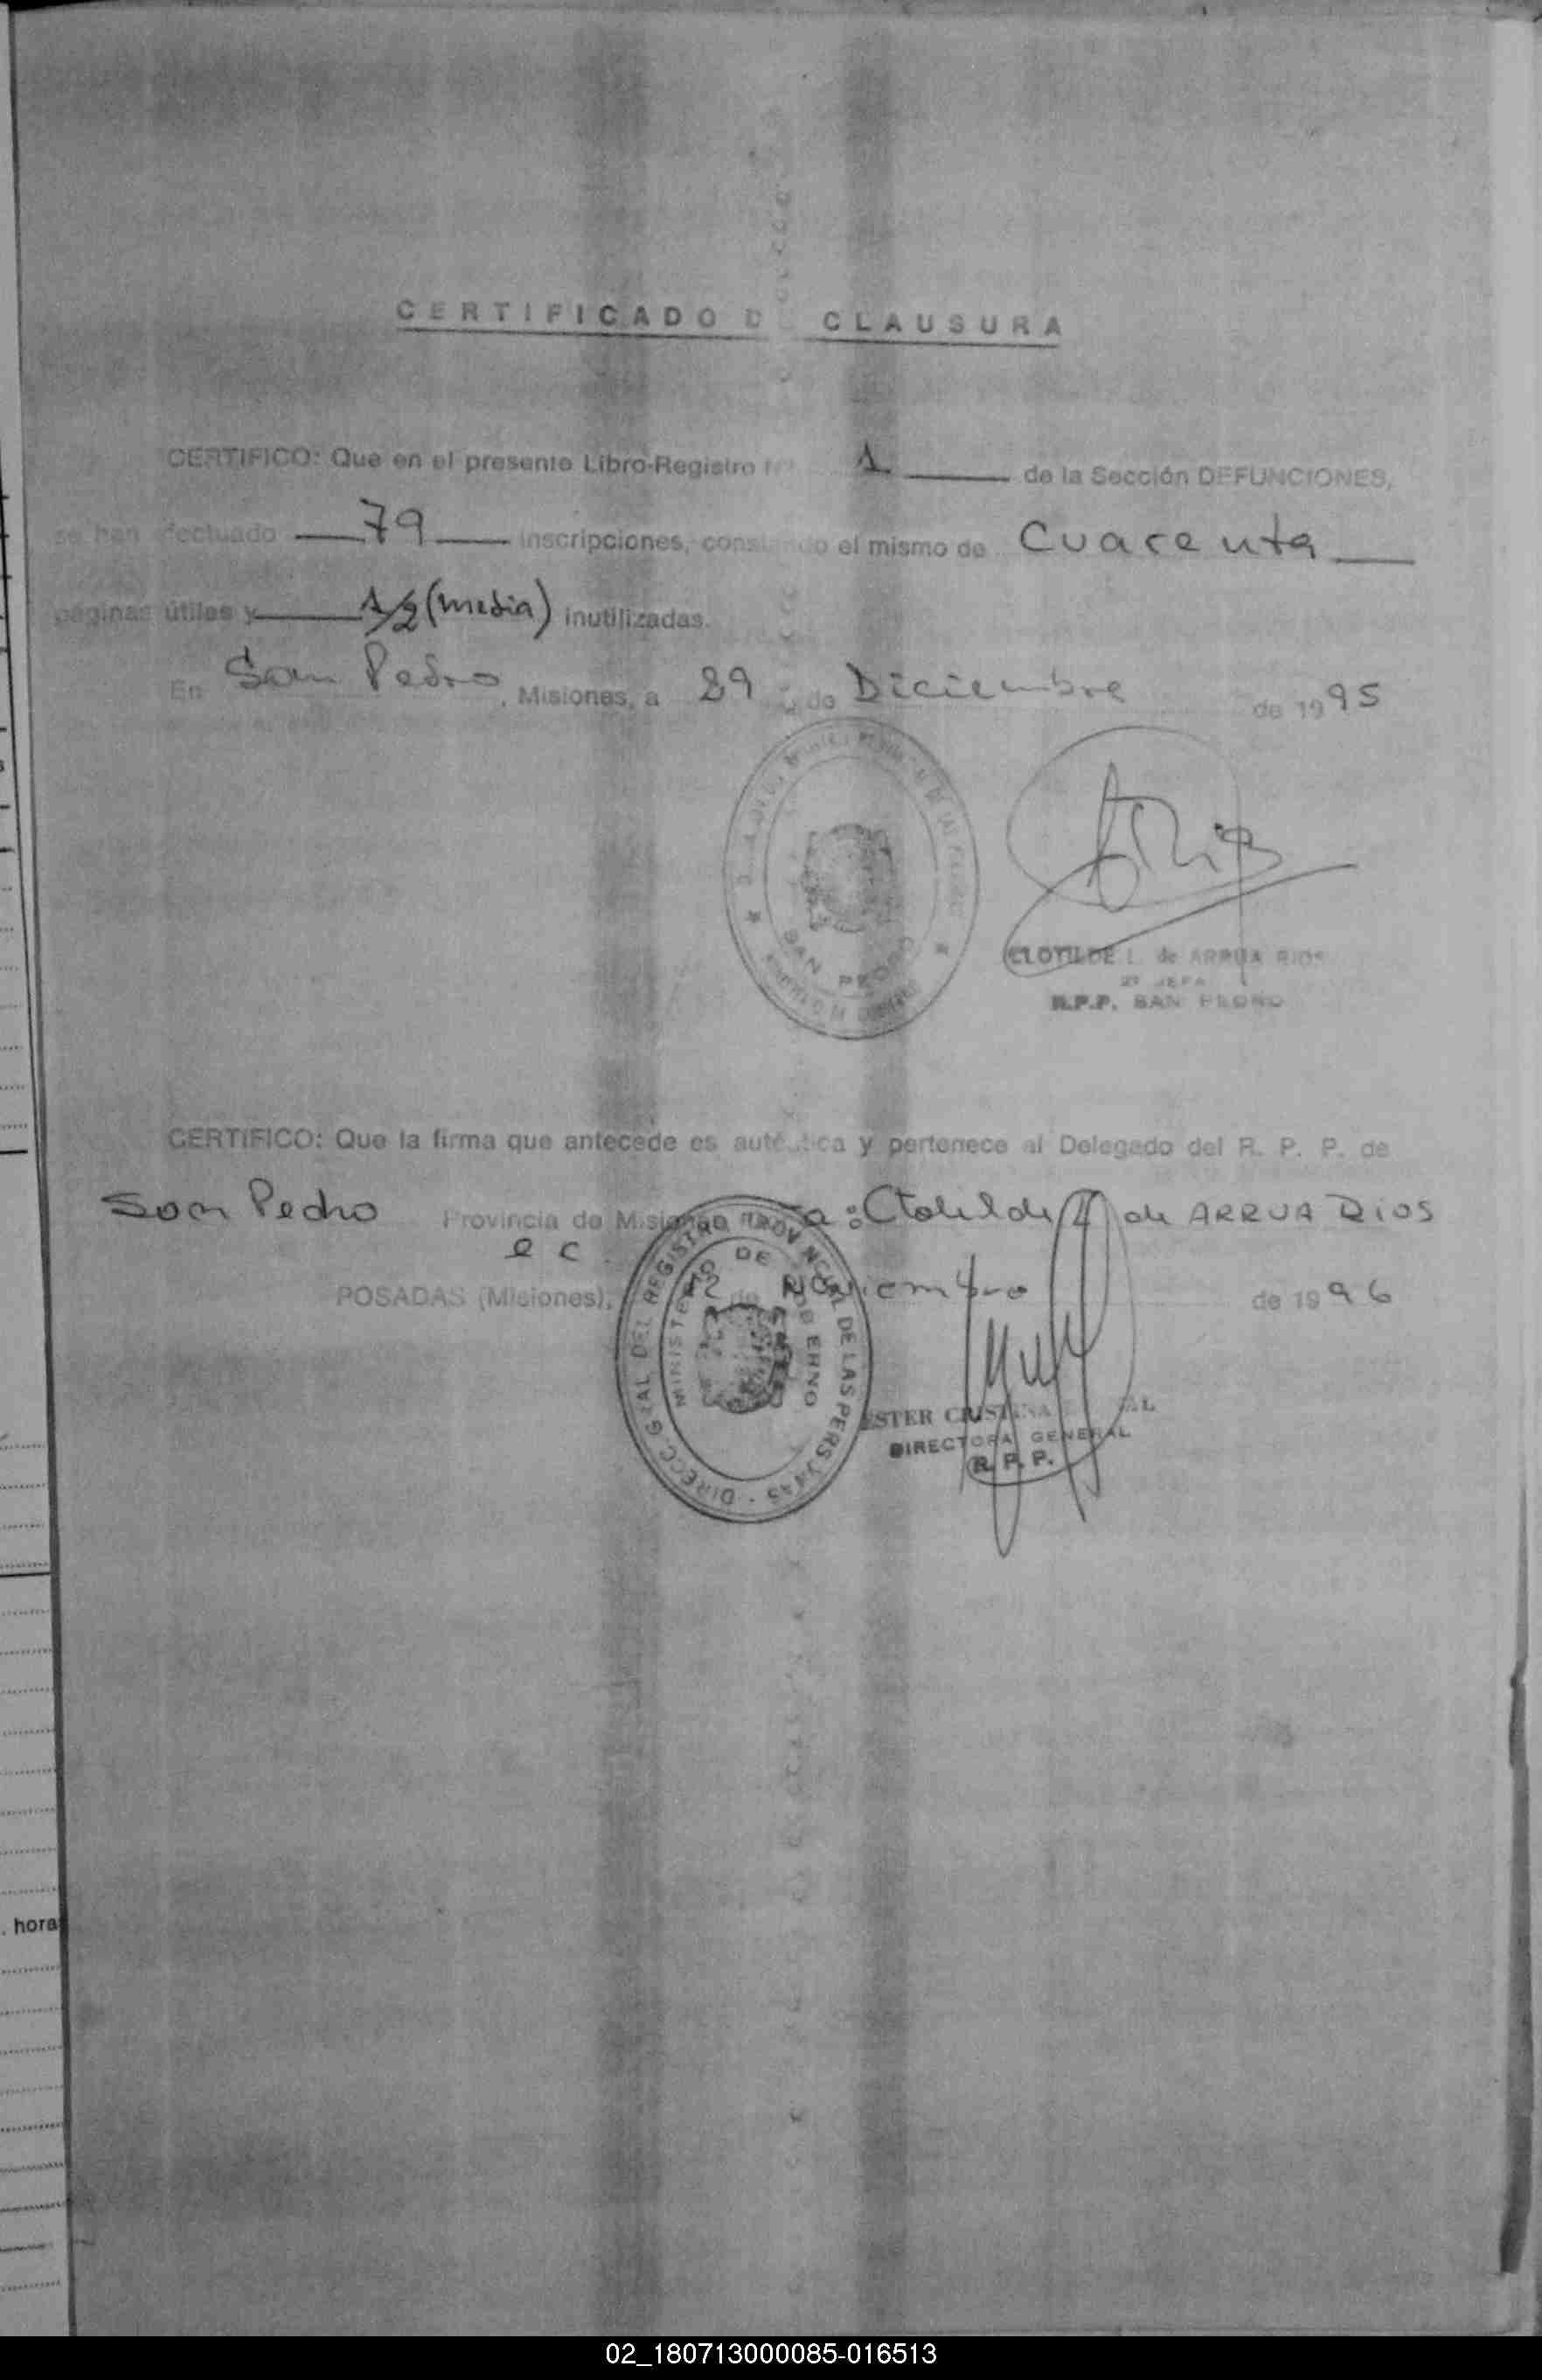 CERTIFICADO D CLAUSURA
CERTIFICO: Que en el presente Libro-Registro Nº 1 de la Sección DEFUNCIONES,
se han efectuado 79 inscripciones, constando el mismo de Cuarenta
páginas útiles y 1/2 (media) inutilizadas.
En San Pedro, Misiones, a 29 de Diciembre de 1995
SAN PEDRO
CLOTILDE I. de ARRUA RIOS
2º JEFA
R.P.P. SAN PEDRO
CERTIFICO: Que la firma que antecede es auténtica y pertenece al Delegado del R. P. P. de
San Pedro Provincia de Misiones Clotilde I de ARRUA RIOS
POSADAS (Misiones), 12 de Noviembre de 1996
DIRECC. GRAL DEL REGISTRO PROVINCIAL DE LAS PERSONAS
MINISTERIO DE GOBIERNO
ESTER CRISTINA
DIRECTORA GENERAL
R. P. P.
. hora
02_180713000085-016513